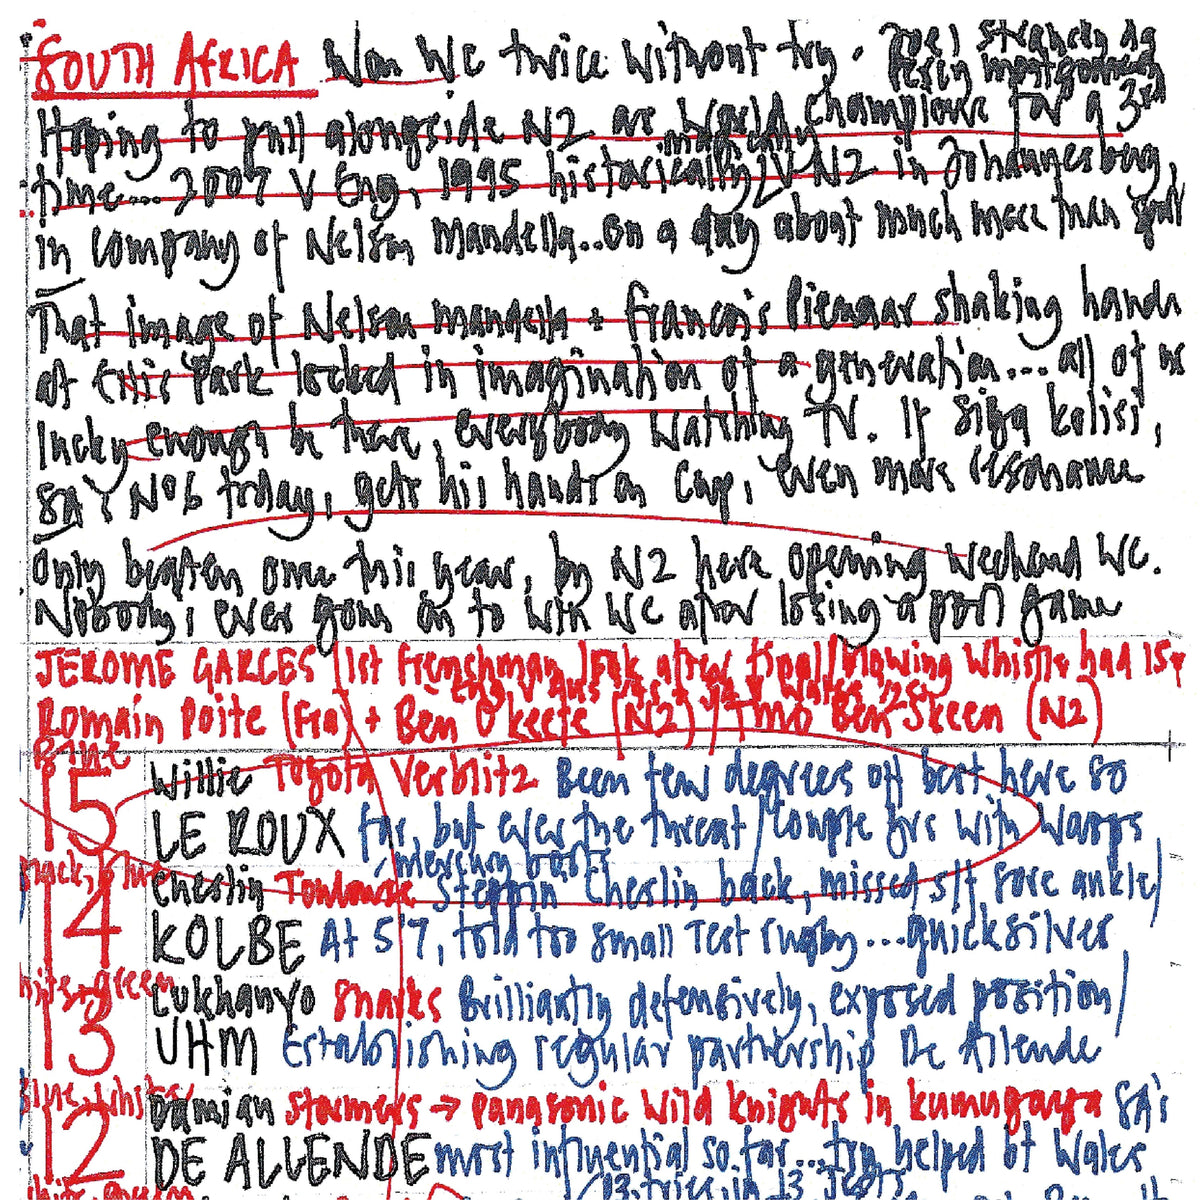 SOUTH AFRICA Won WC twice without try. Joel Stransky dg
Percy Montgomery
Hoping to pull alongside NZ as World Champions for a 3rd
magically
time... 2007 V Eng, 1995 historically, V NZ in Johannesburg,
in company of Nelson Mandella..on a day about much more than sport
That image of Nelson Mandella + Francois Pienaar shaking hands
at Ellis Park locked in imagination of a generation...all of us
lucky enough be there, everybody watching TV. If Siya Kolisi,
SA's No6 today, gets his hands on cup, even more resonance
Only beaten once this year, by NZ here opening weekend WC.
Nobody's ever gone on to win WC after losing a pool game
JEROME GARCES 1st Frenchman look after final/blowing whistle had 1SF
Eng v Aus 1/4s + 1/2 v Wales 1/2s
Romain Poite (Fra) + Ben O'Keefe (NZ)/TMO Ben Skeen (NZ)
15 Willie Toyota Verblitz Been few degrees off best here so
LE ROUX far, but ever the threat/Couple yrs with Wasps
mercury boots
14 Cheslin Toulouse Steppin' Cheslin back, missed s/f sore ankle/
KOLBE At 5 7, told too small Test rugby...quicksilver
white, green
13 Lukhanyo Sharks Brilliantly defensively, exposed position/
UHM Establishing regular partnership De Allende
Blue, white
12 Damian Stormers → Panasonic Wild Knights in Kumugaya SA's
DE ALLENDE most influential so far...try helped bt Wales
white, green
13 tries in 13 Tests